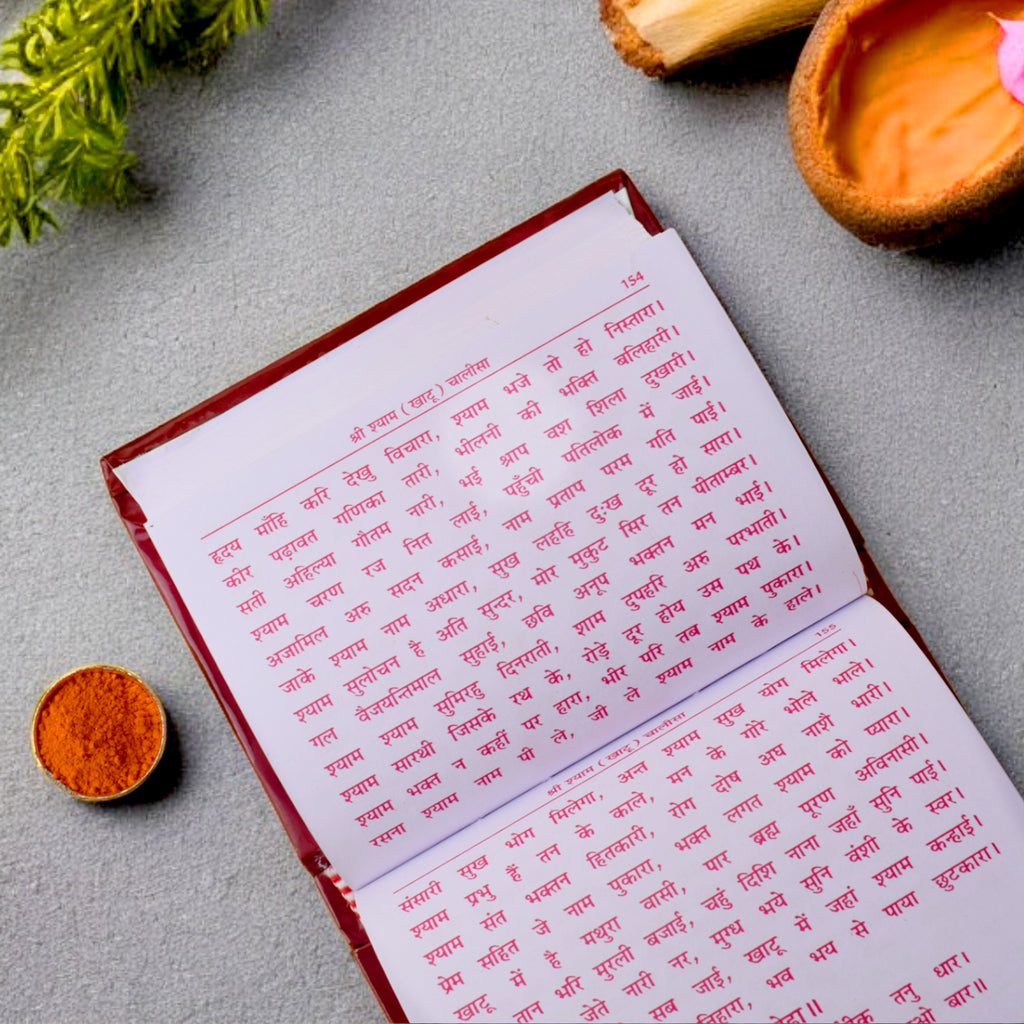 श्री श्याम ( खाटू ) चालीसा 154
हृदय माँहि करि देखु विचारा, श्याम भजे तो हो निस्तारा।
कीर पढ़ावत गणिका तारी, भीलनी की भक्ति बलिहारी।
सती अहिल्या गौतम नारी, भई श्राप वश शिला दुखारी।
श्याम चरण रज नित लाई, पहुँची पतिलोक में जाई।
अजामिल अरु सदन कसाई, नाम प्रताप परम गति पाई।
जाके श्याम नाम अधारा, सुख लहहि दुःख दूर हो सारा।
श्याम सुलोचन है अति सुन्दर, मोर मुकुट सिर तन पीताम्बर।
गल वैजयन्तिमाल सुहाई, छवि अनूप भक्तन मन भाई।
श्याम श्याम सुमिरहु दिनराती, शाम दुपहरि अरु परभाती।
श्याम सारथी जिसके रथ के, रोड़े दूर होय उस पथ के।
श्याम भक्त न कहीं पर हारा, भीर परि तब श्याम पुकारा।
रसना श्याम नाम पी ले, जी ले श्याम नाम के हाले।
श्री श्याम ( खाटू ) चालीसा 155
संसारी सुख भोग मिलेगा, अन्त श्याम सुख योग मिलेगा।
श्याम प्रभु हैं तन के काले, मन के गोरे भोले भाले।
श्याम संत भक्तन हितकारी, रोग दोष अघ नाशै भारी।
प्रेम सहित जे नाम पुकारा, भक्त लगत श्याम को प्यारा।
खाटू में है मथुरा वासी, पार ब्रह्म पूरण अविनासी।
तान भरि मुरली बजाई, चहुं दिशि नाना जहाँ सुनि पाई।
जेते नारी नर, मुग्ध भये सुनि वंशी के स्वर।
सब जाई, खाटू में जहां श्याम कन्हाई।
भव भय से पाया छुटकारा।
तनु धार।
बार॥